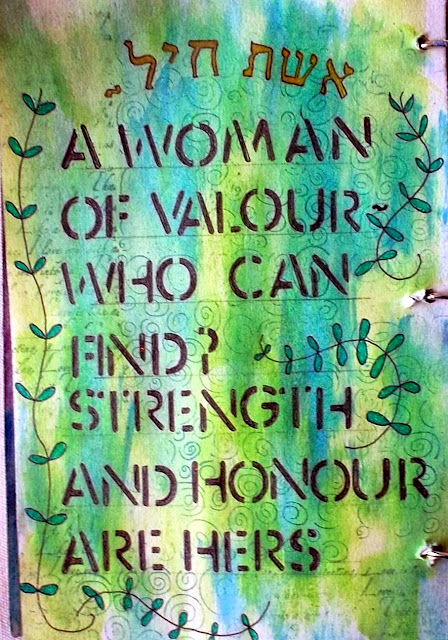 אשת חיל~
A WOMAN
OF VALOUR~
WHO CAN
FIND?
STRENGTH
AND HONOUR
ARE HERS